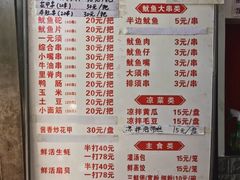 20元/把
鱿鱼大串类
鱿鱼鸵 20元/把
半边鱿鱼 5元/串
鱿鱼片 20元/把
一元须 20元/把
鱿鱼肉 3元/串
综合串 20元/把
鱿鱼仔 3元/串
小嘴串 20元/把
鱿鱼嘴 3元/串
牛油串 20元/把
大须串 3元/串
里脊肉 20元/把
排须串 3元/串
鱼豆腐 20元/把
玉米 20元/把
凉菜类
土豆 20元/把
凉拌黄瓜 15元/盘
小面筋 20元/把
凉拌毛豆 15元/盘
15元/盘
酱香炒花甲 30元/盘
主食类
鲜活生蚝 半打40元
一打78元
灌汤包 15元/笼
鲜活扇贝 半打40元
一打78元
鲜蒸饺 15元/笼